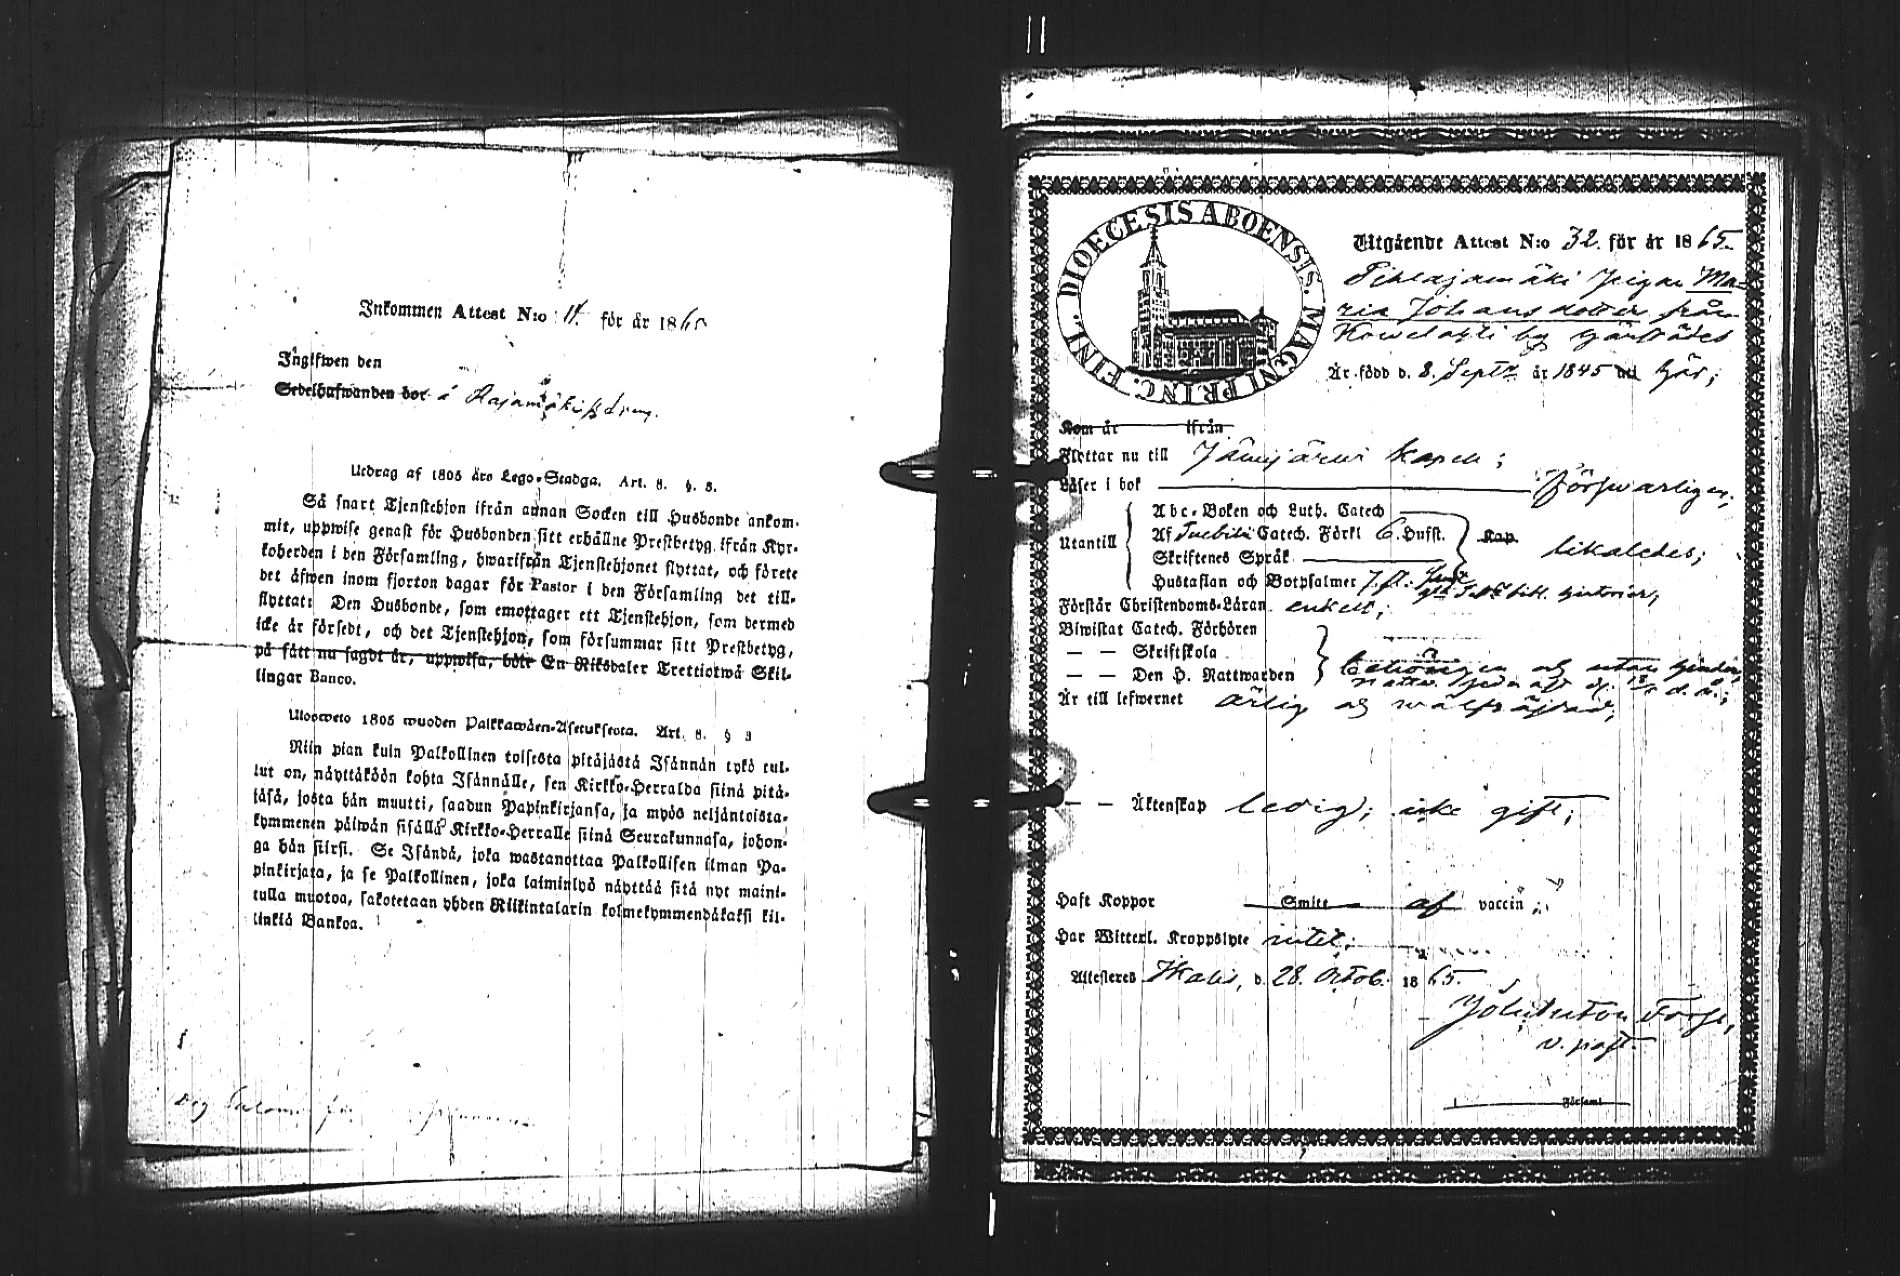 Inkommen Attest N:o 11. för år 1865
Ingifwen den
Sedelhafwanden bor å Rajamäki
Utdrag af 1805 års Lego-Stadga. Art. 8. §. 8.
Så snart Tjenstehjon ifrån annan Socken till Husbonde ankom-
mit, uppwise genast för Husbonden sitt erhållne Prestbetyg ifrån Kyr-
koherden i den Församling, hwarifrån Tjenstehjonet flyttat, och förete
det äfwen inom fjorton dagar för Pastor i den Församling det till-
flyttat: Den Husbonde, som emottager ett Tjenstehjon, som dermed
icke är försedt, och det Tjenstehjon, som försummar sitt Prestbetyg,
på sätt nu sagdt är, uppwisa, böte En Riksdaler Trettiotwå Skil-
lingar Banco.
Ulosweto 1805 wuoden Palkkawäen-Asetuksesta. Art. 8. § 8
Niin pian kuin Palkollinen toisesta pitäjästä Isännän tykö tul-
lut on, näyttäköön kohta Isännälle, sen Kirkko-Herralda siinä pitä-
jäsä, josta hän muutti, saadun Papinkirjansa, ja myös neljäntoista-
kymmenen päiwän sisällä Kirkko-Herralle siinä Seurakunnasa, johon-
ga hän siirsi. Se Isändä, joka wastanottaa Palkollisen ilman Pa-
pinkirjata, ja se Palkollinen, joka laiminlyö näyttää sitä nyt maini-
tulla muotoa, sakotetaan yhden Riikintalarin kolmekymmendäkaksi kil-
linkiä Bankoa.
DIOECESIS ABOENSIS. MAGNI PRINC. FINL.
Utgående Attest N:o 32. för år 1865.
Pihlajamäki pigan Ma-
ria Johansdotter från
Kowelahti by
Är född d. 8. Septr år 1845 här;
Kom år ifrån
Flyttar nu till Jämijärwi kapell;
Läser i bok förswarligen;
Utantill
Abc-Boken och Luth. Catech
Af Svebilii Catech. Förkl 6. Hufst. Kap likaledes;
Skriftenes Språk
Hustaflan och Botpsalmer 7. st.
Förstår Christendoms-Läran enkelt;
Biwistat Catech. Förhören
— — Skriftskola
— — Den H. Nattwarden
Är till lefwernet ärlig och wälfräjdad;
— — Äktenskap ledig; icke gift;
Haft Koppor Smitt af vaccin;
Har Witterl. Kroppslyte intet;
Attesteras Ikalis, d. 28. Octob. 1865.
v. past.
Församl